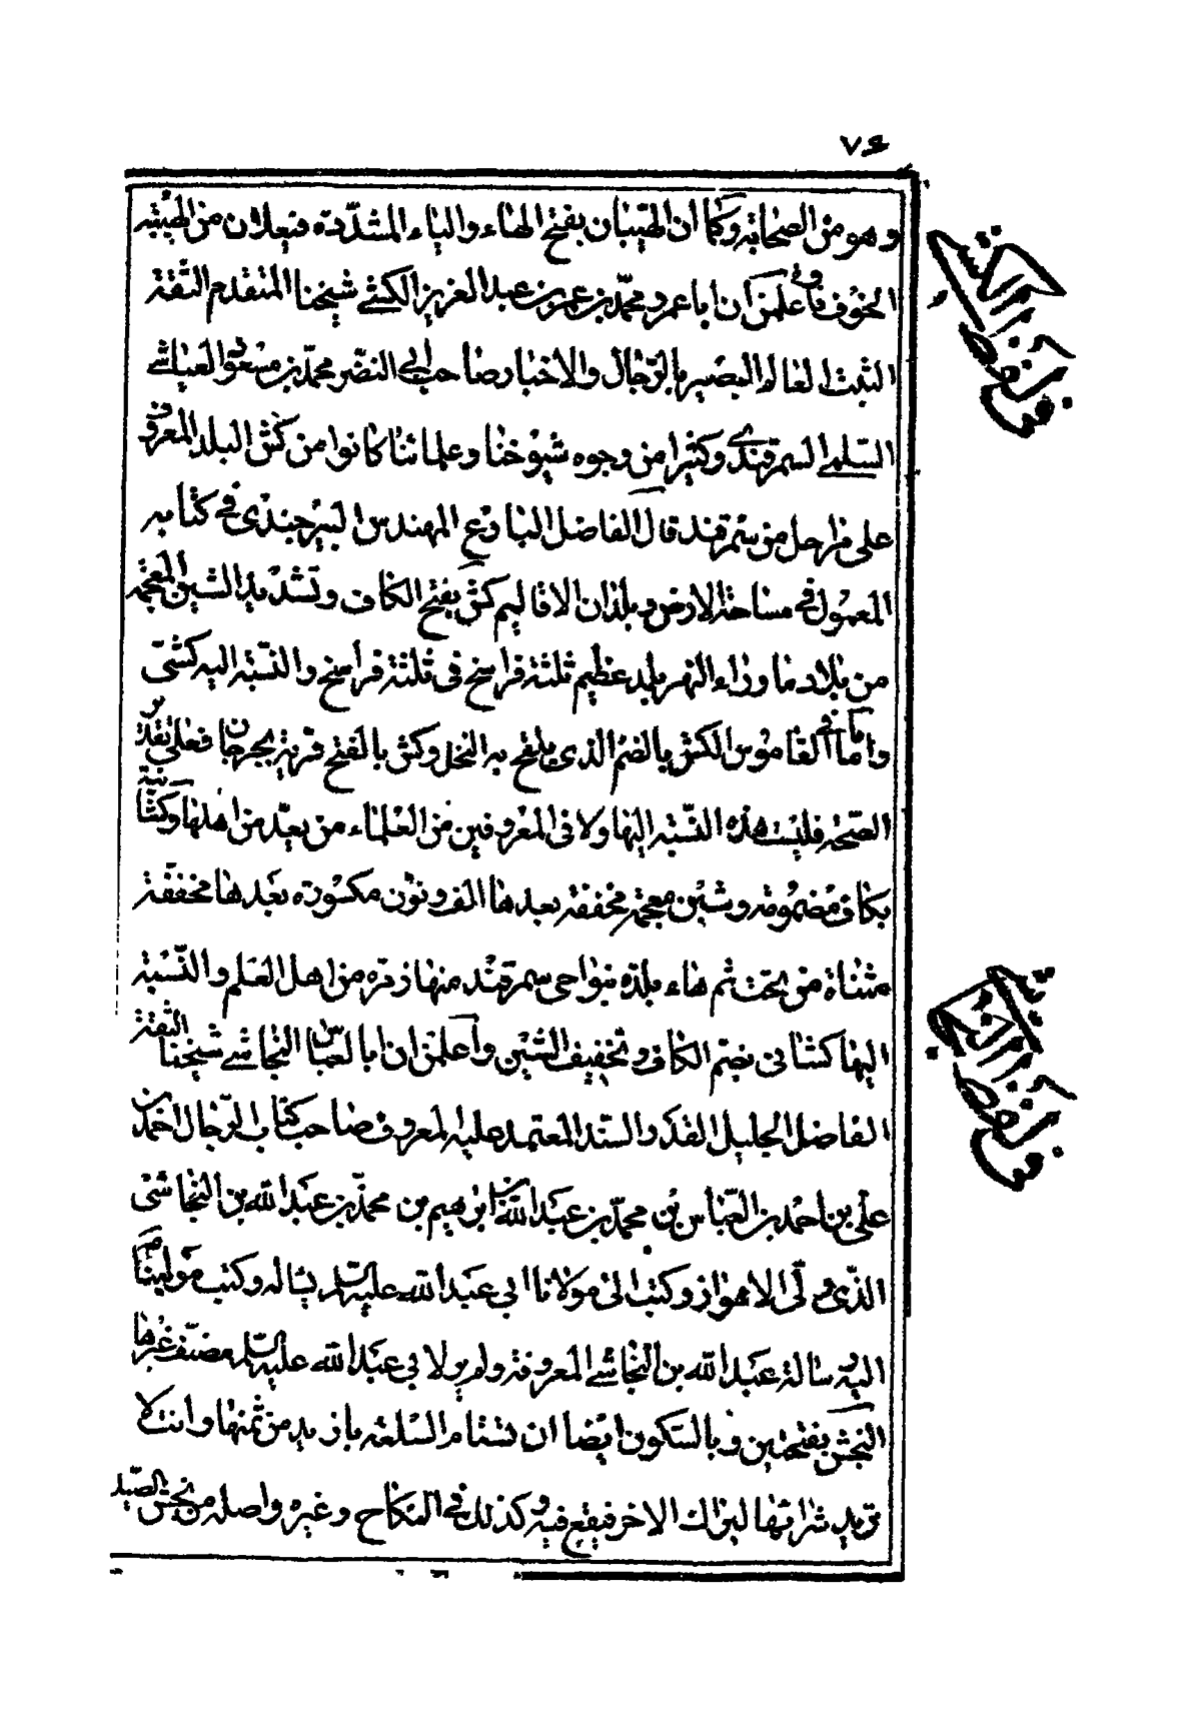 ٧٦
وهو من الصحابة وكما ان الهيبان بفتح الهاء والياء المشددة فيعلان من الهيبة
الخوف فاعلمن ان ابا عمرو محمد بن عمر بن عبد العزيز الكشي شيخنا المتقدم الثقة
الثبت العالم البصير بالرجال والاخبار صاحب ابي النضر محمد بن مسعود العياشي
السلمي السمرقندي وكثيرا من وجوه شيوخنا وعلمائنا كانوا من كش البلد المعروف
على مراحل من سمرقند قال الفاضل البارع المهندس البيرجندي في كتابه
المعمول في مساحة الارض وبلدان الاقاليم كش بفتح الكاف وتشديد الشين المعجمة
من بلاد ما وراء النهر بلد عظيم ثلثة فراسخ في ثلثة فراسخ والنسبة اليه كشي
واما ما في القاموس الكش بالضم الذي يلقح به النخل وكش بالفتح قرية بجرجان فعلى تقدير
الصحة فليست هذه النسبة اليها ولا في المعروفين من العلماء من يعد من اهلها وكشانية
بكاف مضمومة وشين معجمة مخففة بعدها الف ونون مكسورة بعدها مخففة
مثناة من تحت ثم هاء بلدة بنواحي سمرقند منها زمرة من اهل العلم والنسبة
اليها كشاني بضم الكاف وتخفيف الشين واعلمن ان ابا العباس النجاشي شيخنا الثقة
الفاضل الجليل القدر والسند المعتمد عليه المعروف صاحب كتاب الرجال احمد بن
علي بن احمد بن العباس بن محمد بن عبد الله بن ابرهيم بن محمد بن عبد الله بن النجاشي
الذي ولي الاهواز وكتب الى مولانا ابي عبد الله عليه السلم يسأله وكتب مولينا ص
اليه رسالة عبد الله بن النجاشي المعروفة ولم ير لابي عبد الله عليه السلم مصنف غيرها
النجش بفتحتين وبالسكون ايضا ان تستام السلعة بازيد من ثمنها وانت لا
تريد شراءها ليراك الاخر فيقع فيه وكذلك في النكاح وغيره واصله من نجش الصيد
في لفظ
في لفظ النجاشي